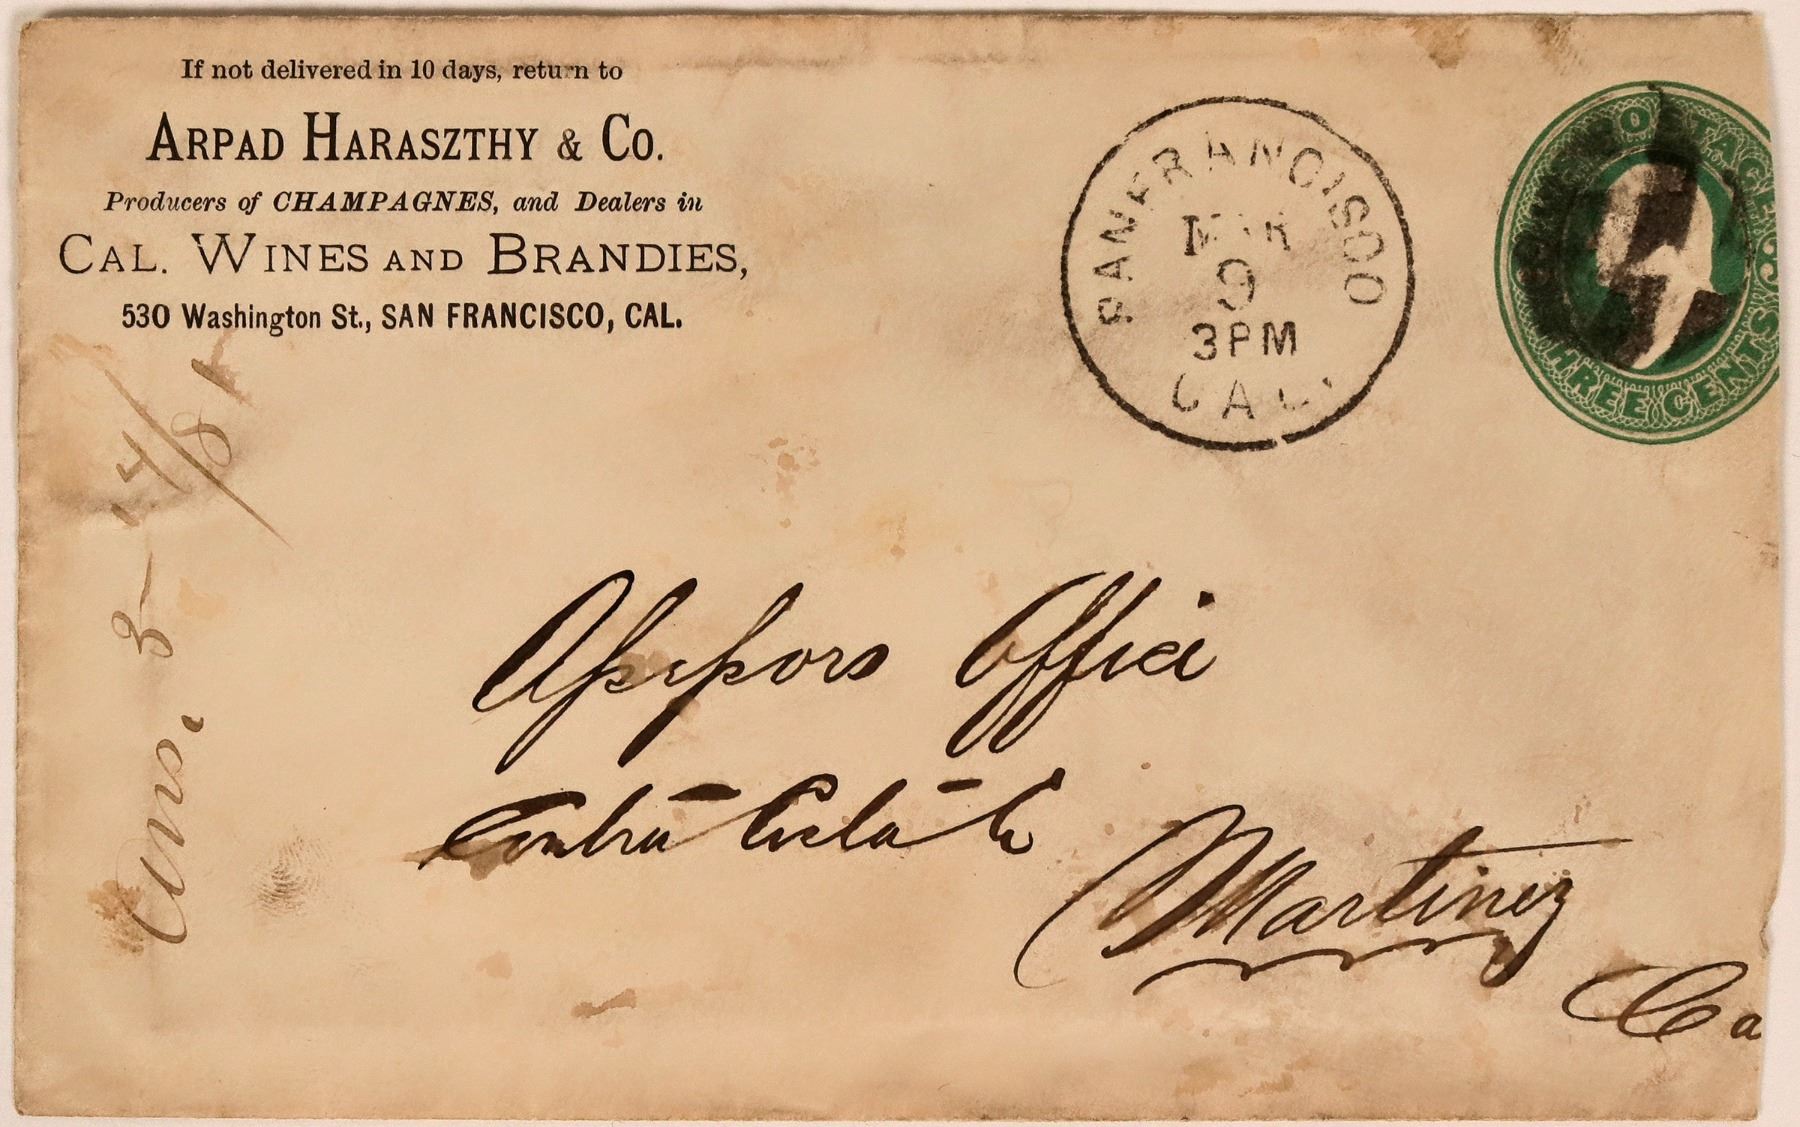 If not delivered in 10 days, return to
ARPAD HARASZTHY & CO.
Producers of CHAMPAGNES, and Dealers in
CAL. WINES AND BRANDIES,
530 Washington St., SAN FRANCISCO, CAL.
SAN FRANCISCO
MAR
9
3PM
CAL.
POSTAGE
THREE CENTS
Ans. 3-14/81
Office
Contra Costa Co
Martinez
Ca